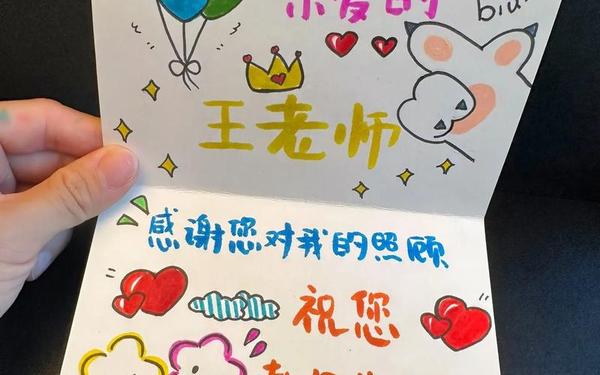 亲爱的
biu~
王老师
感谢您对我的照顾
祝您